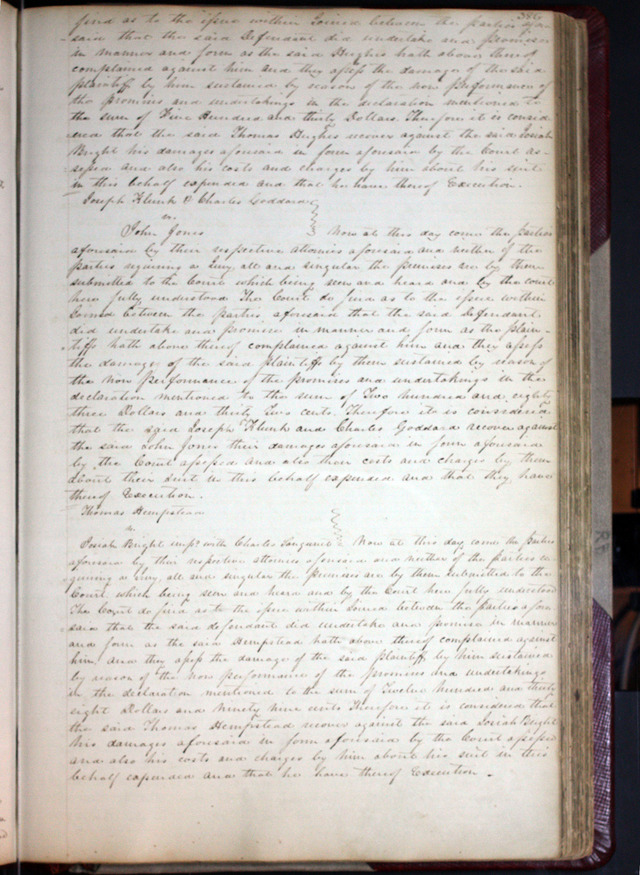 find as to the issue within Joined between the parties afore
said that the said Defendant did undertake and promise
in manner and form as the said Bughes hath above thereof
complained against him and they assess the damages of the said
plaintiff by him sustained by reason of the non performance of
the promises and undertakings in the declaration mentioned to
the sum of Five Hundred and thirty Dollars. Therefore it is consid
ered that the said Thomas Bughes recover against the said Josiah
Bright his damages aforesaid in form aforesaid by the Court as-
sessed and also his costs and charges by him about his suit
in this behalf expended and that he have thereof Execution.
Joseph Klunk & Charles Goddard
vs.
John Jones Now at this day comes the parties
aforesaid by their respective attornies aforesaid and neither of the
parties requiring a Jury all and singular the premises are by them
submitted to the Court which being seen and heard and by the court
here fully understood The Court do find as to the issue within
Joined between the parties aforesaid that the said defendant
did undertake and promise in manner and form as the plain-
tiff hath above thereof complained against him and they assess
the damages of the said plaintiffs by them sustained by reason of
the Non performance of the promises and undertakings in the
declaration mentioned to the sum of Two hundred and eighty
three Dollars and thirty Two cents. Therefore it is considered
that the said Joseph Klunk and Charles Goddard recover against
the said John Jones their damages aforesaid in form aforesaid
by the Court assessed and also their costs and charges by them
about their suit in this behalf expended and that they have
thereof Execution.
Thomas Hempstead
vs.
Josiah Bright impd with Charles Sanguinet Now at this day come the parties
aforesaid by their respective attornies aforesaid and neither of the parties re
quiring a Jury, all and singular the premises are by them submitted to the
Court which being seen and heard and by the Court here fully understood
The Court do find as to the issue within Joined between the parties afore
said that the said defendant did undertake and promise in manner
and form as the said Hempstead hath above thereof complained against
him, and they assess the damage of the said plaintiff by him sustained
by reason of the non performance of the promises and undertakings
in the declaration mentioned to the sum of Twelve hundred and thirty
eight Dollars and Ninety nine cents Therefore it is considered that
the said Thomas Hempstead recover against the said Josiah Bright
his damages aforesaid in form aforesaid by the Court assessed
and also his costs and charges by him about his suit in this
behalf expended and that he have thereof Execution.